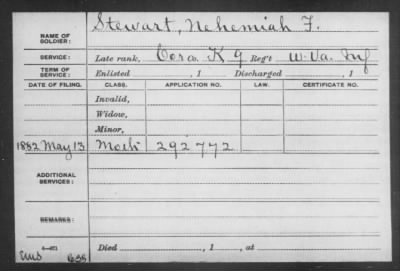 NAME OF SOLDIER: Stewart, Nehemiah F.
SERVICE: Late rank, Cor Co. K 9 Reg't W. Va. Inf
TERM OF SERVICE: Enlisted , 1 Discharged , 1
DATE OF FILING. CLASS. APPLICATION NO. LAW. CERTIFICATE NO.
Invalid,
Widow,
Minor,
1882 May 13 Moth 292772
ADDITIONAL SERVICES:
REMARKS:
Died , 1 , at
638